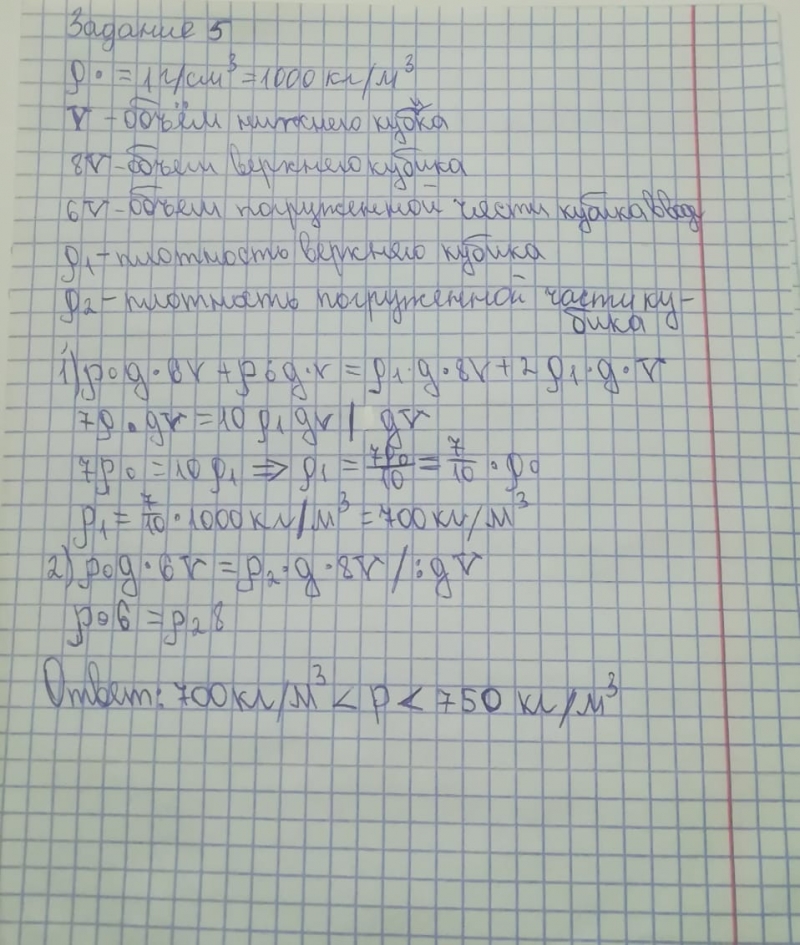 Задание 5
ρ₀ = 1 г/см³ = 1000 кг/м³
V - объём нижнего кубика
8V - объем верхнего кубика
6V - объем погруженной части кубика в вод
ρ₁ - плотность верхнего кубика
ρ₂ - плотность погруженной части ку-
бика
1) ρ₀g·6V + ρ₀g·V = ρ₁·g·8V + 2ρ₁·g·V
7ρ₀gV = 10ρ₁gV | gV
7ρ₀ = 10ρ₁ ⇒ ρ₁ = 7ρ₀/10 = 7/10 · ρ₀
ρ₁ = 7/10 · 1000 кг/м³ = 700 кг/м³
2) ρ₀g·6V = ρ₂·g·8V /:gV
ρ₀6 = ρ₂8
Ответ: 700 кг/м³ < ρ < 750 кг/м³